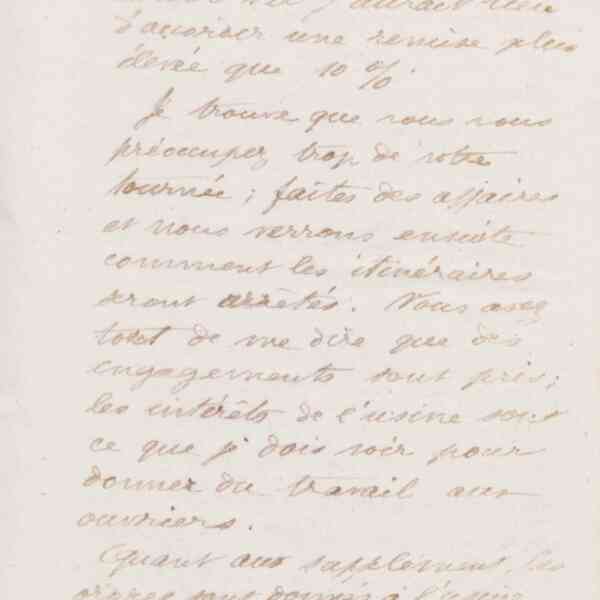 d'accorder une remise plus
élevée que 10 %
Je trouve que vous vous
préoccupez trop de votre
tournée ; faites des affaires
et nous verrons ensuite
comment les itinéraires
seront arrêtés. Vous avez
tort de me dire que des
engagements sont pris ;
les intérêts de l'usine sont
ce que je dois voir pour
donner du travail aux
ouvriers.
Quant aux supplément, les
ordres sont donnés à l'usine